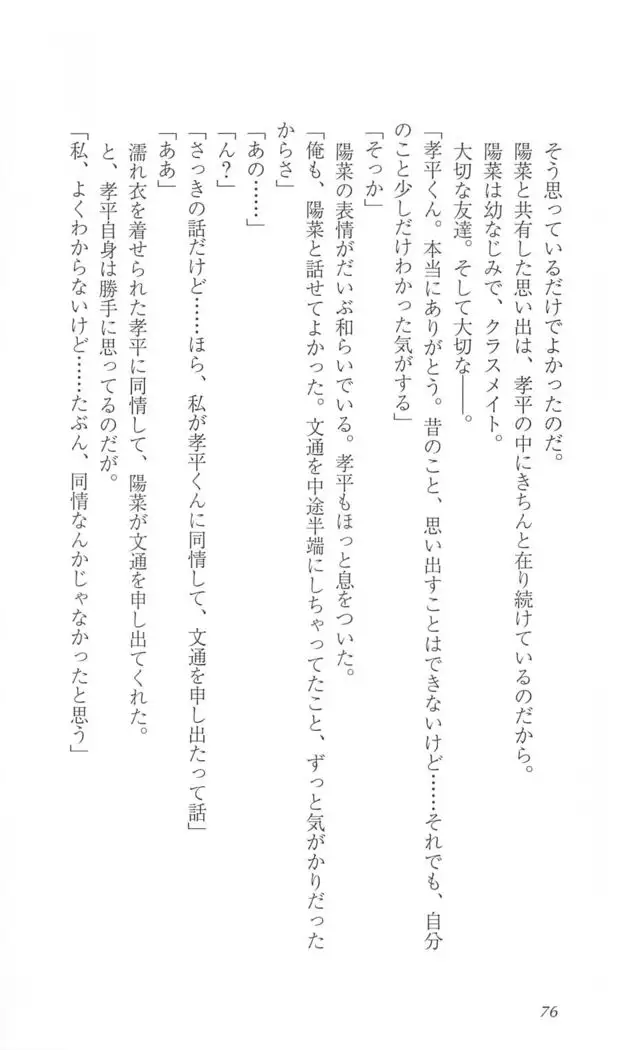 そう思っているだけでよかったのだ。
陽菜と共有した思い出は、孝平の中にきちんと在り続けているのだから。
陽菜は幼なじみで、クラスメイト。
大切な友達。そして大切な――。
「孝平くん。本当にありがとう。昔のこと、思い出すことはできないけど……それでも、自分
のこと少しだけわかった気がする」
「そっか」
陽菜の表情がだいぶ和らいでいる。孝平もほっと息をついた。
「俺も、陽菜と話せてよかった。文通を中途半端にしちゃってたこと、ずっと気がかりだった
からさ」
「あの……」
「ん？」
「さっきの話だけど……ほら、私が孝平くんに同情して、文通を申し出たって話」
「ああ」
濡れ衣を着せられた孝平に同情して、陽菜が文通を申し出てくれた。
と、孝平自身は勝手に思ってるのだが。
「私、よくわからないけど……たぶん、同情なんかじゃなかったと思う」
76